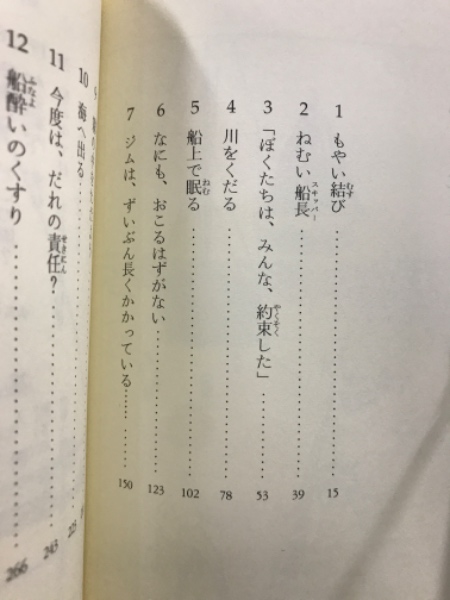 1 もやい結び…………15
2 ねむい船長…………39
3 「ぼくたちは、みんな、約束した」…………53
4 川をくだる…………78
5 船上で眠る…………102
6 なにも、おこるはずがない…………123
7 ジムは、ずいぶん長くかかっている…………150
10 海へ出る…………
11 今度は、だれの責任?…………243
12 船酔いのくすり…………266